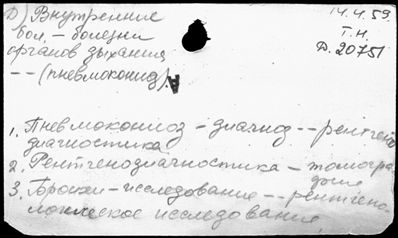 D) Внутренние
бол. – болезни
органов дыхания
-- (пневмокониоз).
14.4.59
Т.Н.
Д. 20751
1. Пневмокониоз – диагноз -- рентгено
диагностика
2. Рентгенодиагностика – томогра
фия
3. Бронхи – исследование -- рентгено-
логическое исследование